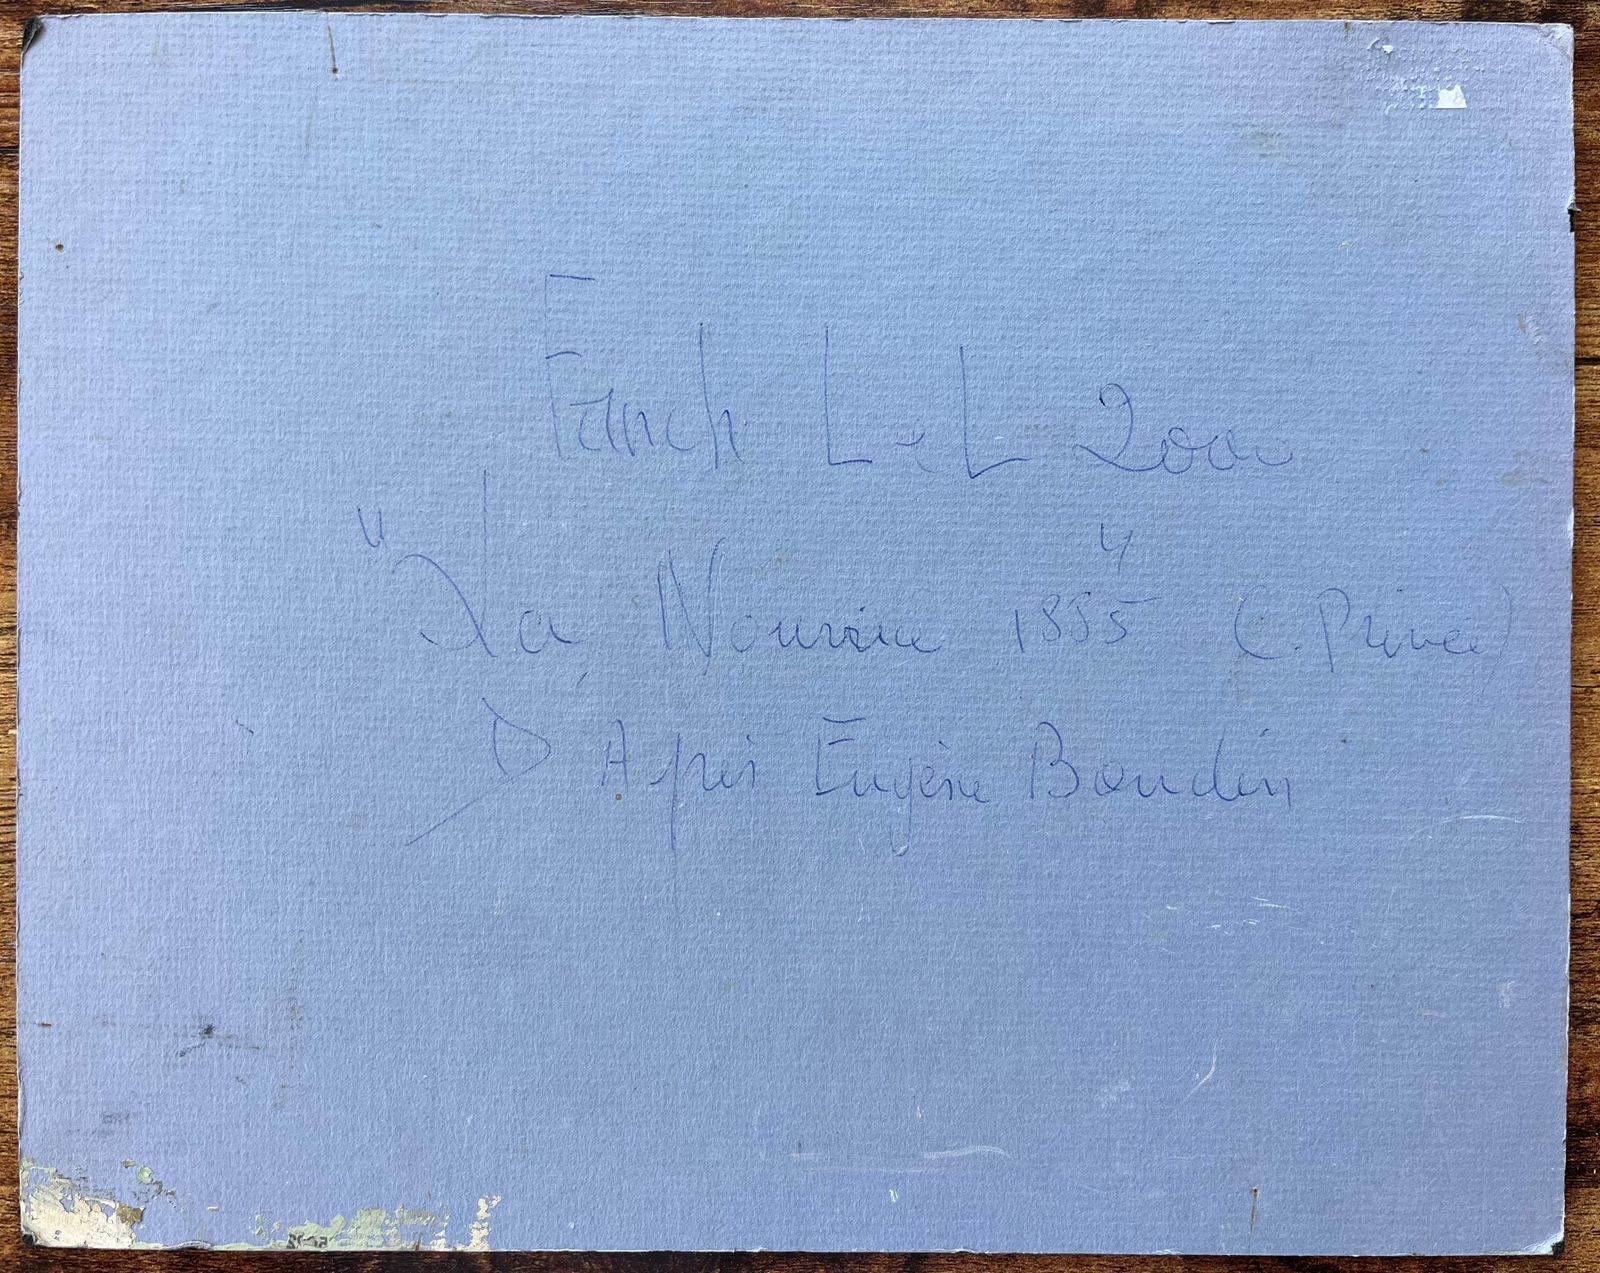 Fanch L-L 2000
"La Nourrice 1885" (C. Privée)
D'Après Eugène Boudin